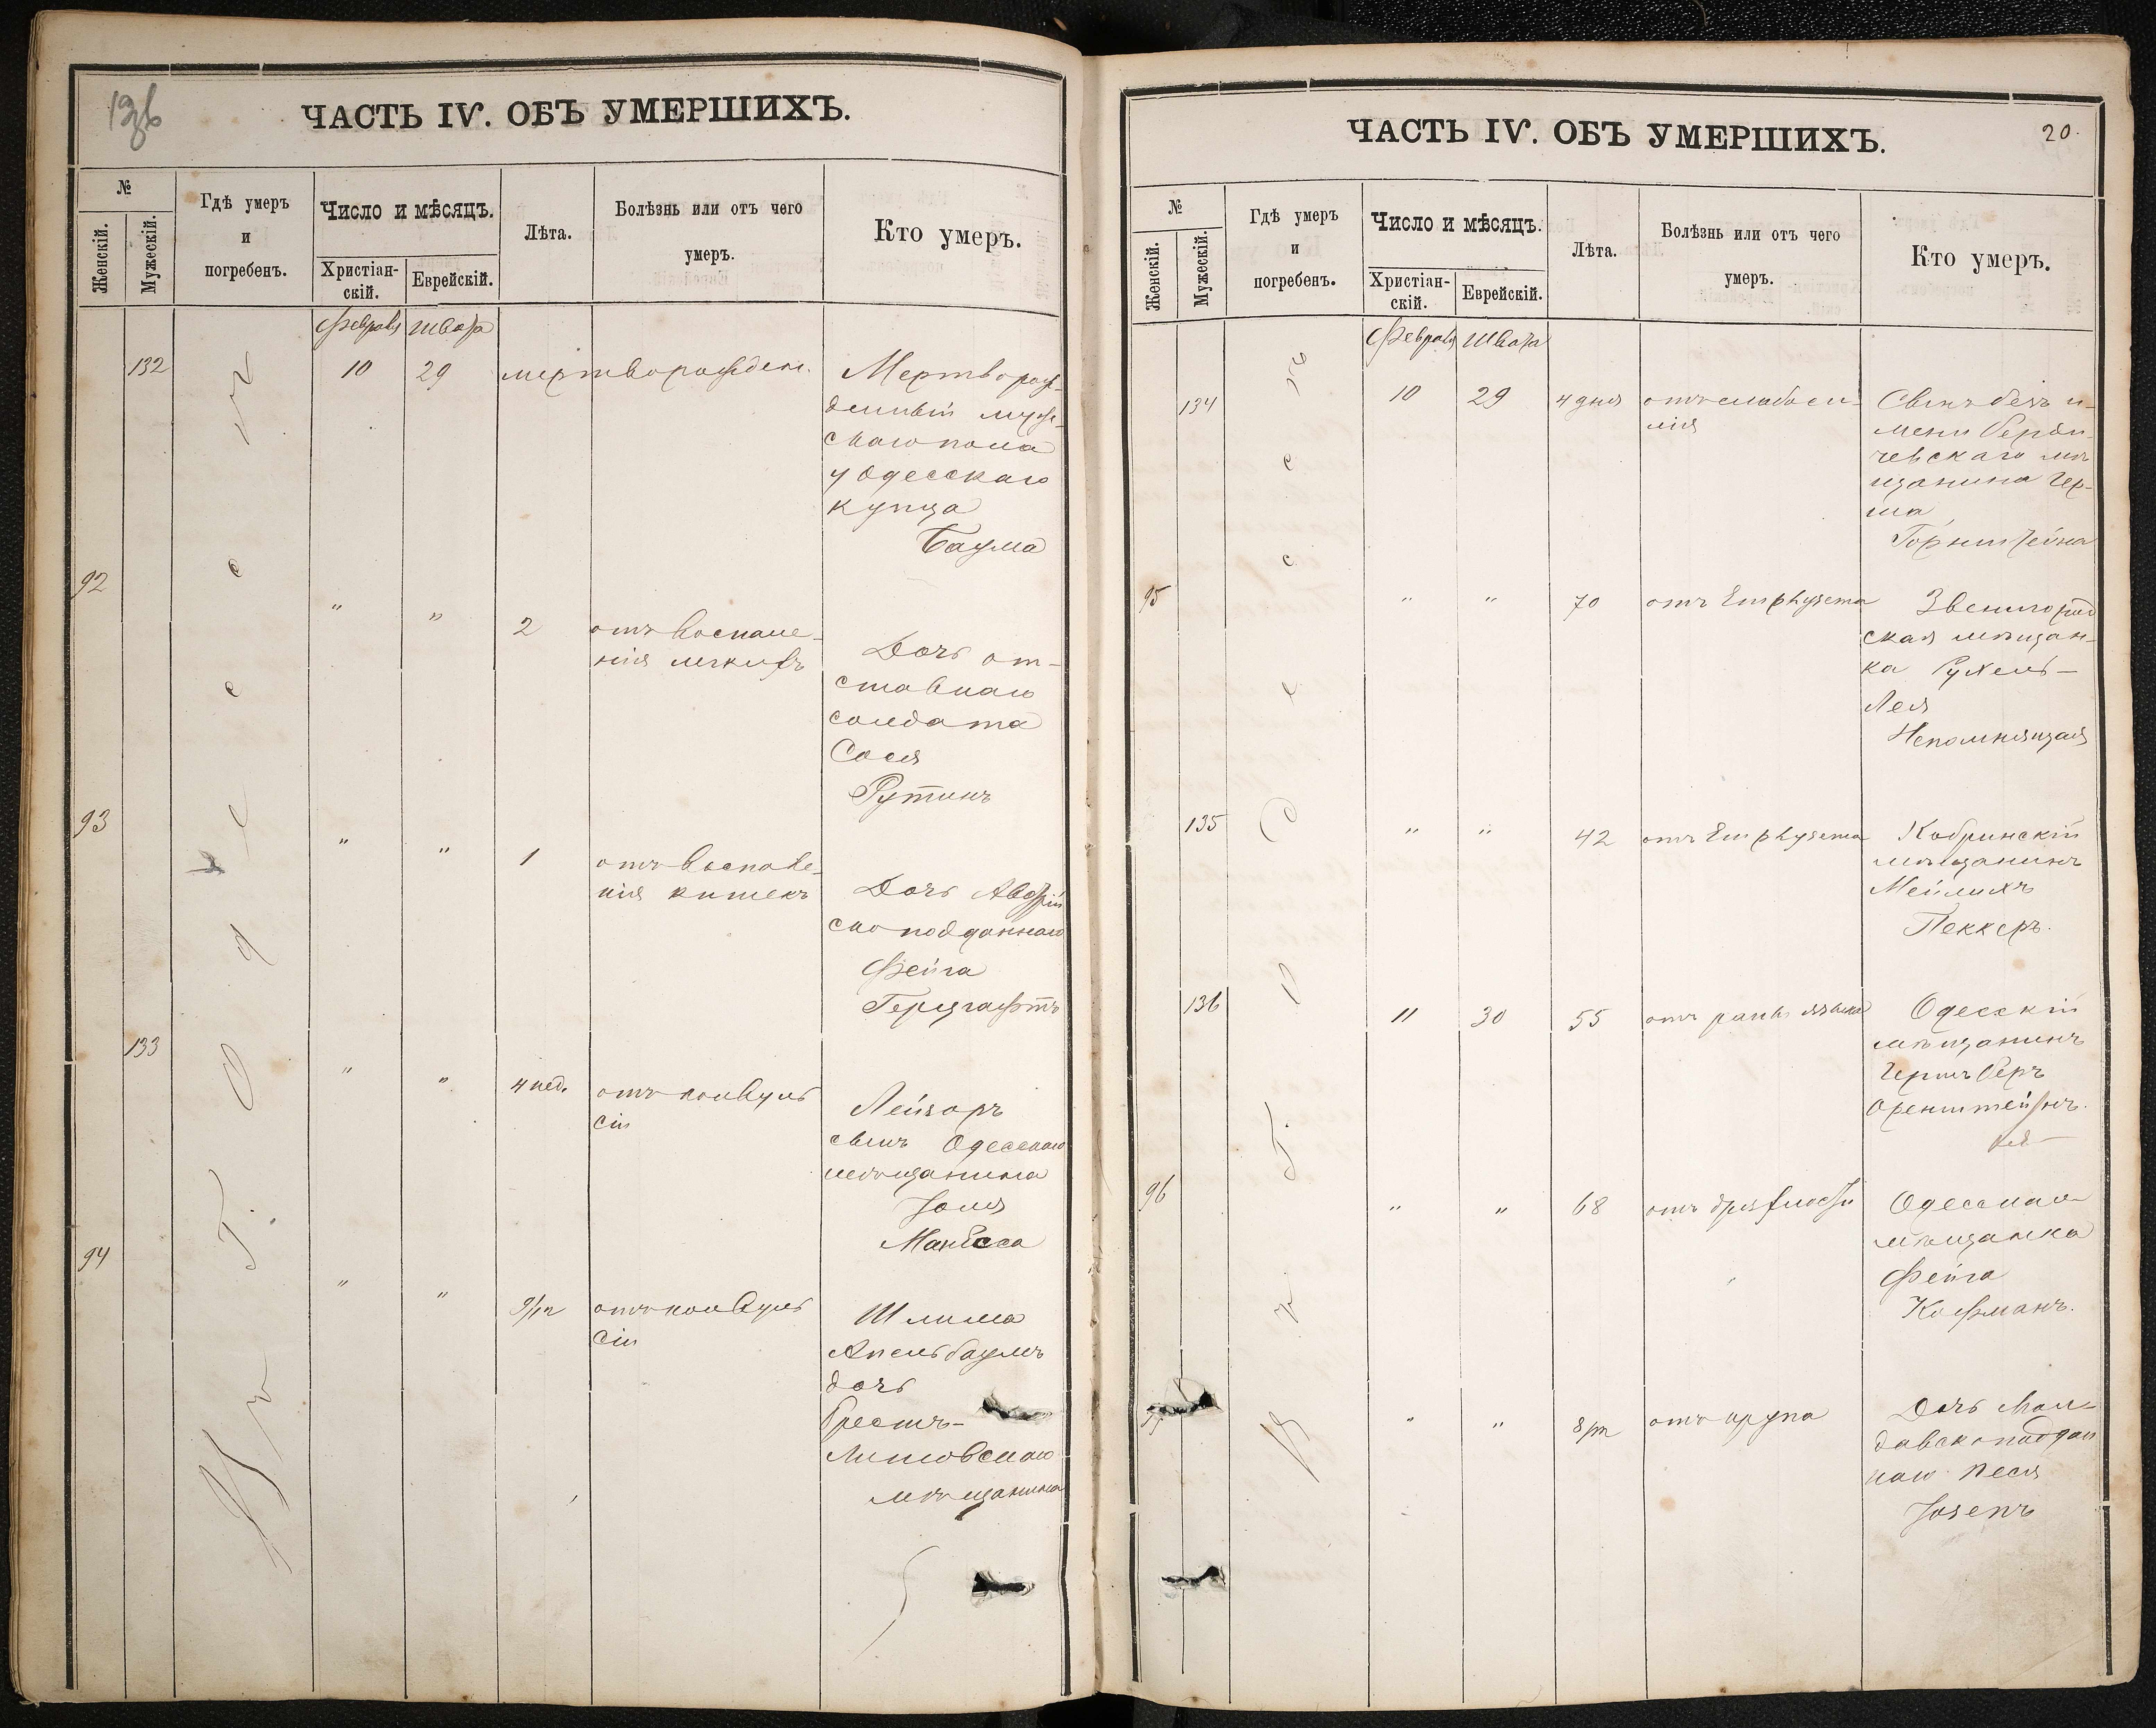 136
ЧАСТЬ IV. ОБЪ УМЕРШИХЪ.
№
Женскій.
Мужескій.
Гдѣ умеръ
и
погребенъ.
Число и мѣсяцъ.
Христіан-
скій.
Еврейскій.
Лѣта.
Болѣзнь или отъ чего
умеръ.
Кто умеръ.
Февраля Швота
132 10 29 мертворожден.
Мертворож-
денный муже-
скаго пола
у Одесскаго
купца
Баума
92 " " 2
отъ воспале-
нія легкихъ
Дочь от-
ставнаго
солдата
Сося
Рутинъ
93 " " 1
отъ воспале-
нія кишекъ
Дочь Австрій
ско подданнаго
Фейга
Герцгафтъ
133 " " 4 нед.
отъ конвуль
сіи
Лейзоръ
сынъ Одесскаго
мѣщанина
Іоля
Манесса
94 " "
отъ конвуль
сіи
Шлима
Апельбаумъ
дочь
Брестъ-
Литовскаго
мѣщанина
Въ г. Одессѣ
ЧАСТЬ IV. ОБЪ УМЕРШИХЪ.
20.
№
Женскій.
Мужескій.
Гдѣ умеръ
и
погребенъ.
Число и мѣсяцъ.
Христіан-
скій.
Еврейскій.
Лѣта.
Болѣзнь или отъ чего
умеръ.
Кто умеръ.
Февраля Швота
134 10 29 4 дня
отъ слабоси-
лія
Сынъ безъ и-
мени Берди-
чевскаго мѣ
щанина Гер-
ша
Горнштейна
95 " " 70 отъ Emphysema
Звенигород
ская мѣщан-
ка Рухель-
Лея
Непомнящая
135 " " 42 отъ Emphysema
Кобринскій
мѣщанинъ
Мейлихъ
Пеккеръ.
136 11 30 55 отъ рака языка
Одесскій
мѣщанинъ
Гершъ Беръ
Оренштейнъ.
96 " " 68 отъ дряхлости
Одесская
мѣщанка
Фейга
Кофманъ.
97 " " 8/м отъ крупа
Дочь Мол-
давскоподдан
наго Песя
Іозепъ
Въ г. Одессѣ